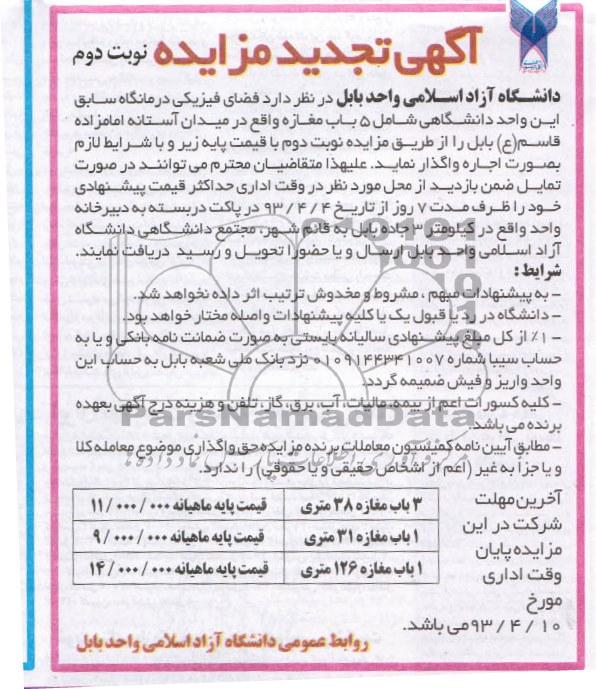 آگهی تجدید مزایده نوبت دوم
دانشگاه آزاد اسلامی واحد بابل در نظر دارد فضای فیزیکی درمانگاه سابق
این واحد دانشگاهی شامل ۵ باب مغازه واقع در میدان آستانه امامزاده
قاسم(ع) بابل را از طریق مزایده نوبت دوم با قیمت پایه زیر و با شرایط لازم
بصورت اجاره واگذار نماید. علیهذا متقاضیان محترم می توانند در صورت
تمایل ضمن بازدید از محل مورد نظر در وقت اداری حداکثر قیمت پیشنهادی
خود را ظرف مدت ۷ روز از تاریخ ۹۳/۴/۴ در پاکت دربسته به دبیرخانه
واحد واقع در کیلومتر ۳ جاده بابل به قائم شهر، مجتمع دانشگاهی دانشگاه
آزاد اسلامی واحد بابل ارسال و یا حضورا تحویل و رسید دریافت نمایند.
شرایط :
- به پیشنهادات مبهم ، مشروط و مخدوش ترتیب اثر داده نخواهد شد.
- دانشگاه در رد یا قبول یک یا کلیه پیشنهادات واصله مختار خواهد بود.
- ۱٪ از کل مبلغ پیشنهادی سالیانه بایستی به صورت ضمانت نامه بانکی و یا به
حساب سیبا شماره ۰۱۰۹۱۴۴۳۴۱۰۰۷ نزد بانک ملی شعبه بابل به حساب این
واحد واریز و فیش ضمیمه گردد.
- کلیه کسورات اعم از بیمه، مالیات، آب، برق، گاز، تلفن و هزینه درج آگهی بعهده
برنده می باشد.
ParsNamadData
- مطابق آیین نامه کمیسیون معاملات برنده مزایده حق واگذاری موضوع معامله کلا
و یا جزا به غیر (اعم از اشخاص حقیقی و یا حقوقی) را ندارد.
آخرین مهلت
شرکت در این
مزایده پایان
وقت اداری
مورخ
۹۳/۴/۱۰ می باشد.
۳ باب مغازه ۳۸ متری قیمت پایه ماهیانه ۱۱/۰۰۰/۰۰۰
۱ باب مغازه ۳۱ متری قیمت پایه ماهیانه ۹/۰۰۰/۰۰۰
۱ باب مغازه ۱۲۶ متری قیمت پایه ماهیانه ۱۴/۰۰۰/۰۰۰
روابط عمومی دانشگاه آزاد اسلامی واحد بابل